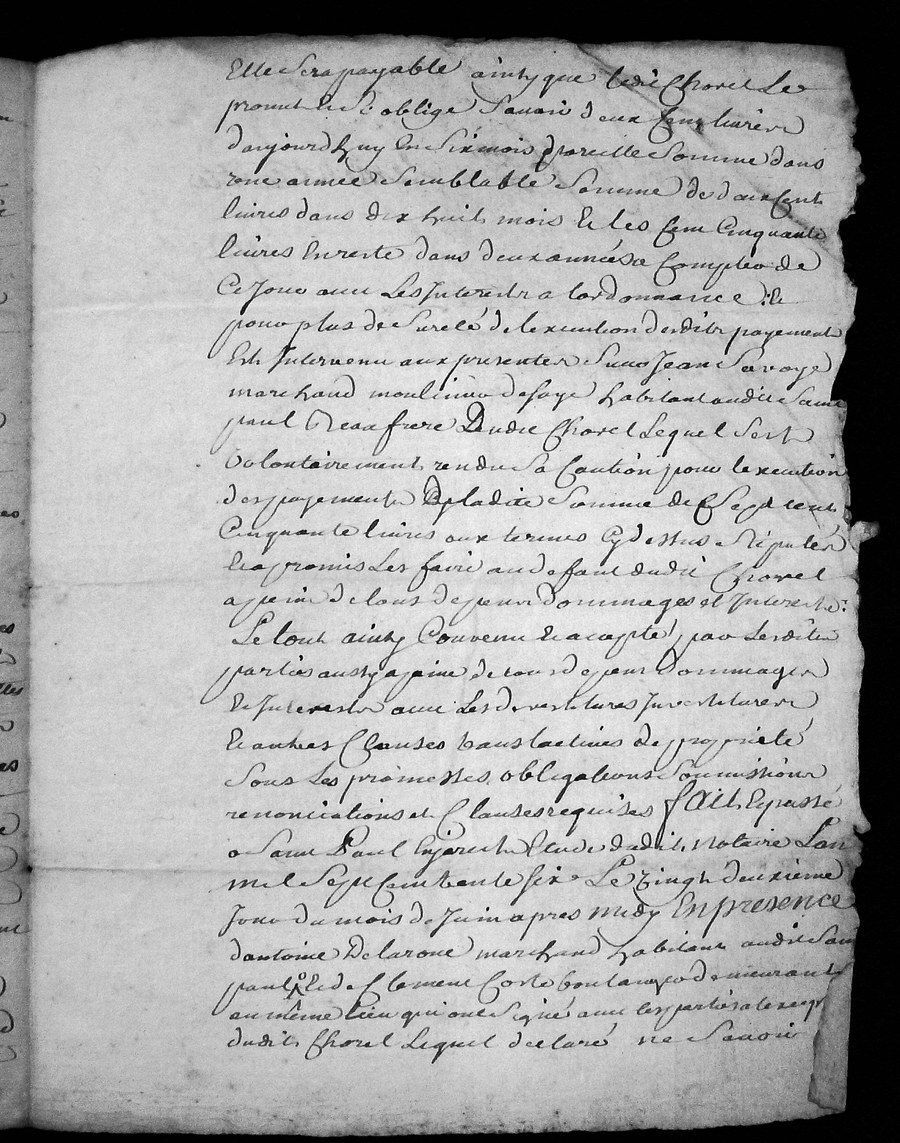 Elle Sera payable ainsy que ledit Chorel Le
promet et S'oblige Savoir deux Cent livres
daujourdhuy En Six mois pareille Somme dans
une année Semblable Somme de deux Cent
livres dans dix huit mois et les Cent Cinquante
livres En reste dans deux années a Compter de
Ce Jour avec Les Interests a lordonnance Et
pour plus de Sureté de lexecution desdits payements
Est Intervenu aux presentes Sieur Jean Savoye
marchand moulinier de soye habitant audit Saint
paul Beau frere Dudit Chorel Lequel Sest
Volontairement rendu Sa Caution pour lexecution
des payements De ladite Somme de Sept cent
Cinquante livres aux termes Cy dessus Stipulés
Et a promis Les faire au defaut dudit Chorel
a peine de tous depens dommages et Interests
Le tout ainsy Convenu Et accepté par Lesdites
parties aussy a peine de tous depens Dommages
Et Interests avec Les devestitures Investitures
Et autres Clauses translatives de propriété
Sous Les promesses obligations Soumissions
renonciations et Clauses requises fait Et passé
a Saint Paul En Jarest Etude dudit Notaire L'an
mil Sept Cent trente Six Le vingt deuxieme
Jour du mois de Juin apres midy En presence
dantoine Delaroue marchand habitant audit Saint
paul Et de Clement Coste boulanger demeurant
au même lieu qui ont Signé avec les parties a la reserve
dudit Chorel Lequel declaré ne Savoir